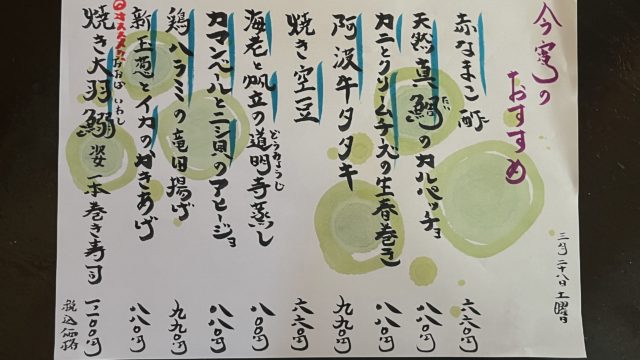 今宵の
おすすめ
三月二十八日 土曜日
赤なまこ酢 六六〇円
天然真鯛のカルパッチョ 八八〇円
カニとクリームチーズの生春巻き 八八〇円
阿波牛タタキ 九九〇円
焼き空豆 六六〇円
どうみょうじ
海老と帆立の道明寺蒸し
カマンベールとニシ貝のアヒージョ 八八〇円
鶏ハラミの竜田揚げ 九九〇円
新玉葱とイカのかきあげ 八八〇円
おおば いわし
焼き大羽鰯 姿一本巻き寿司 一一〇〇円
税込価格